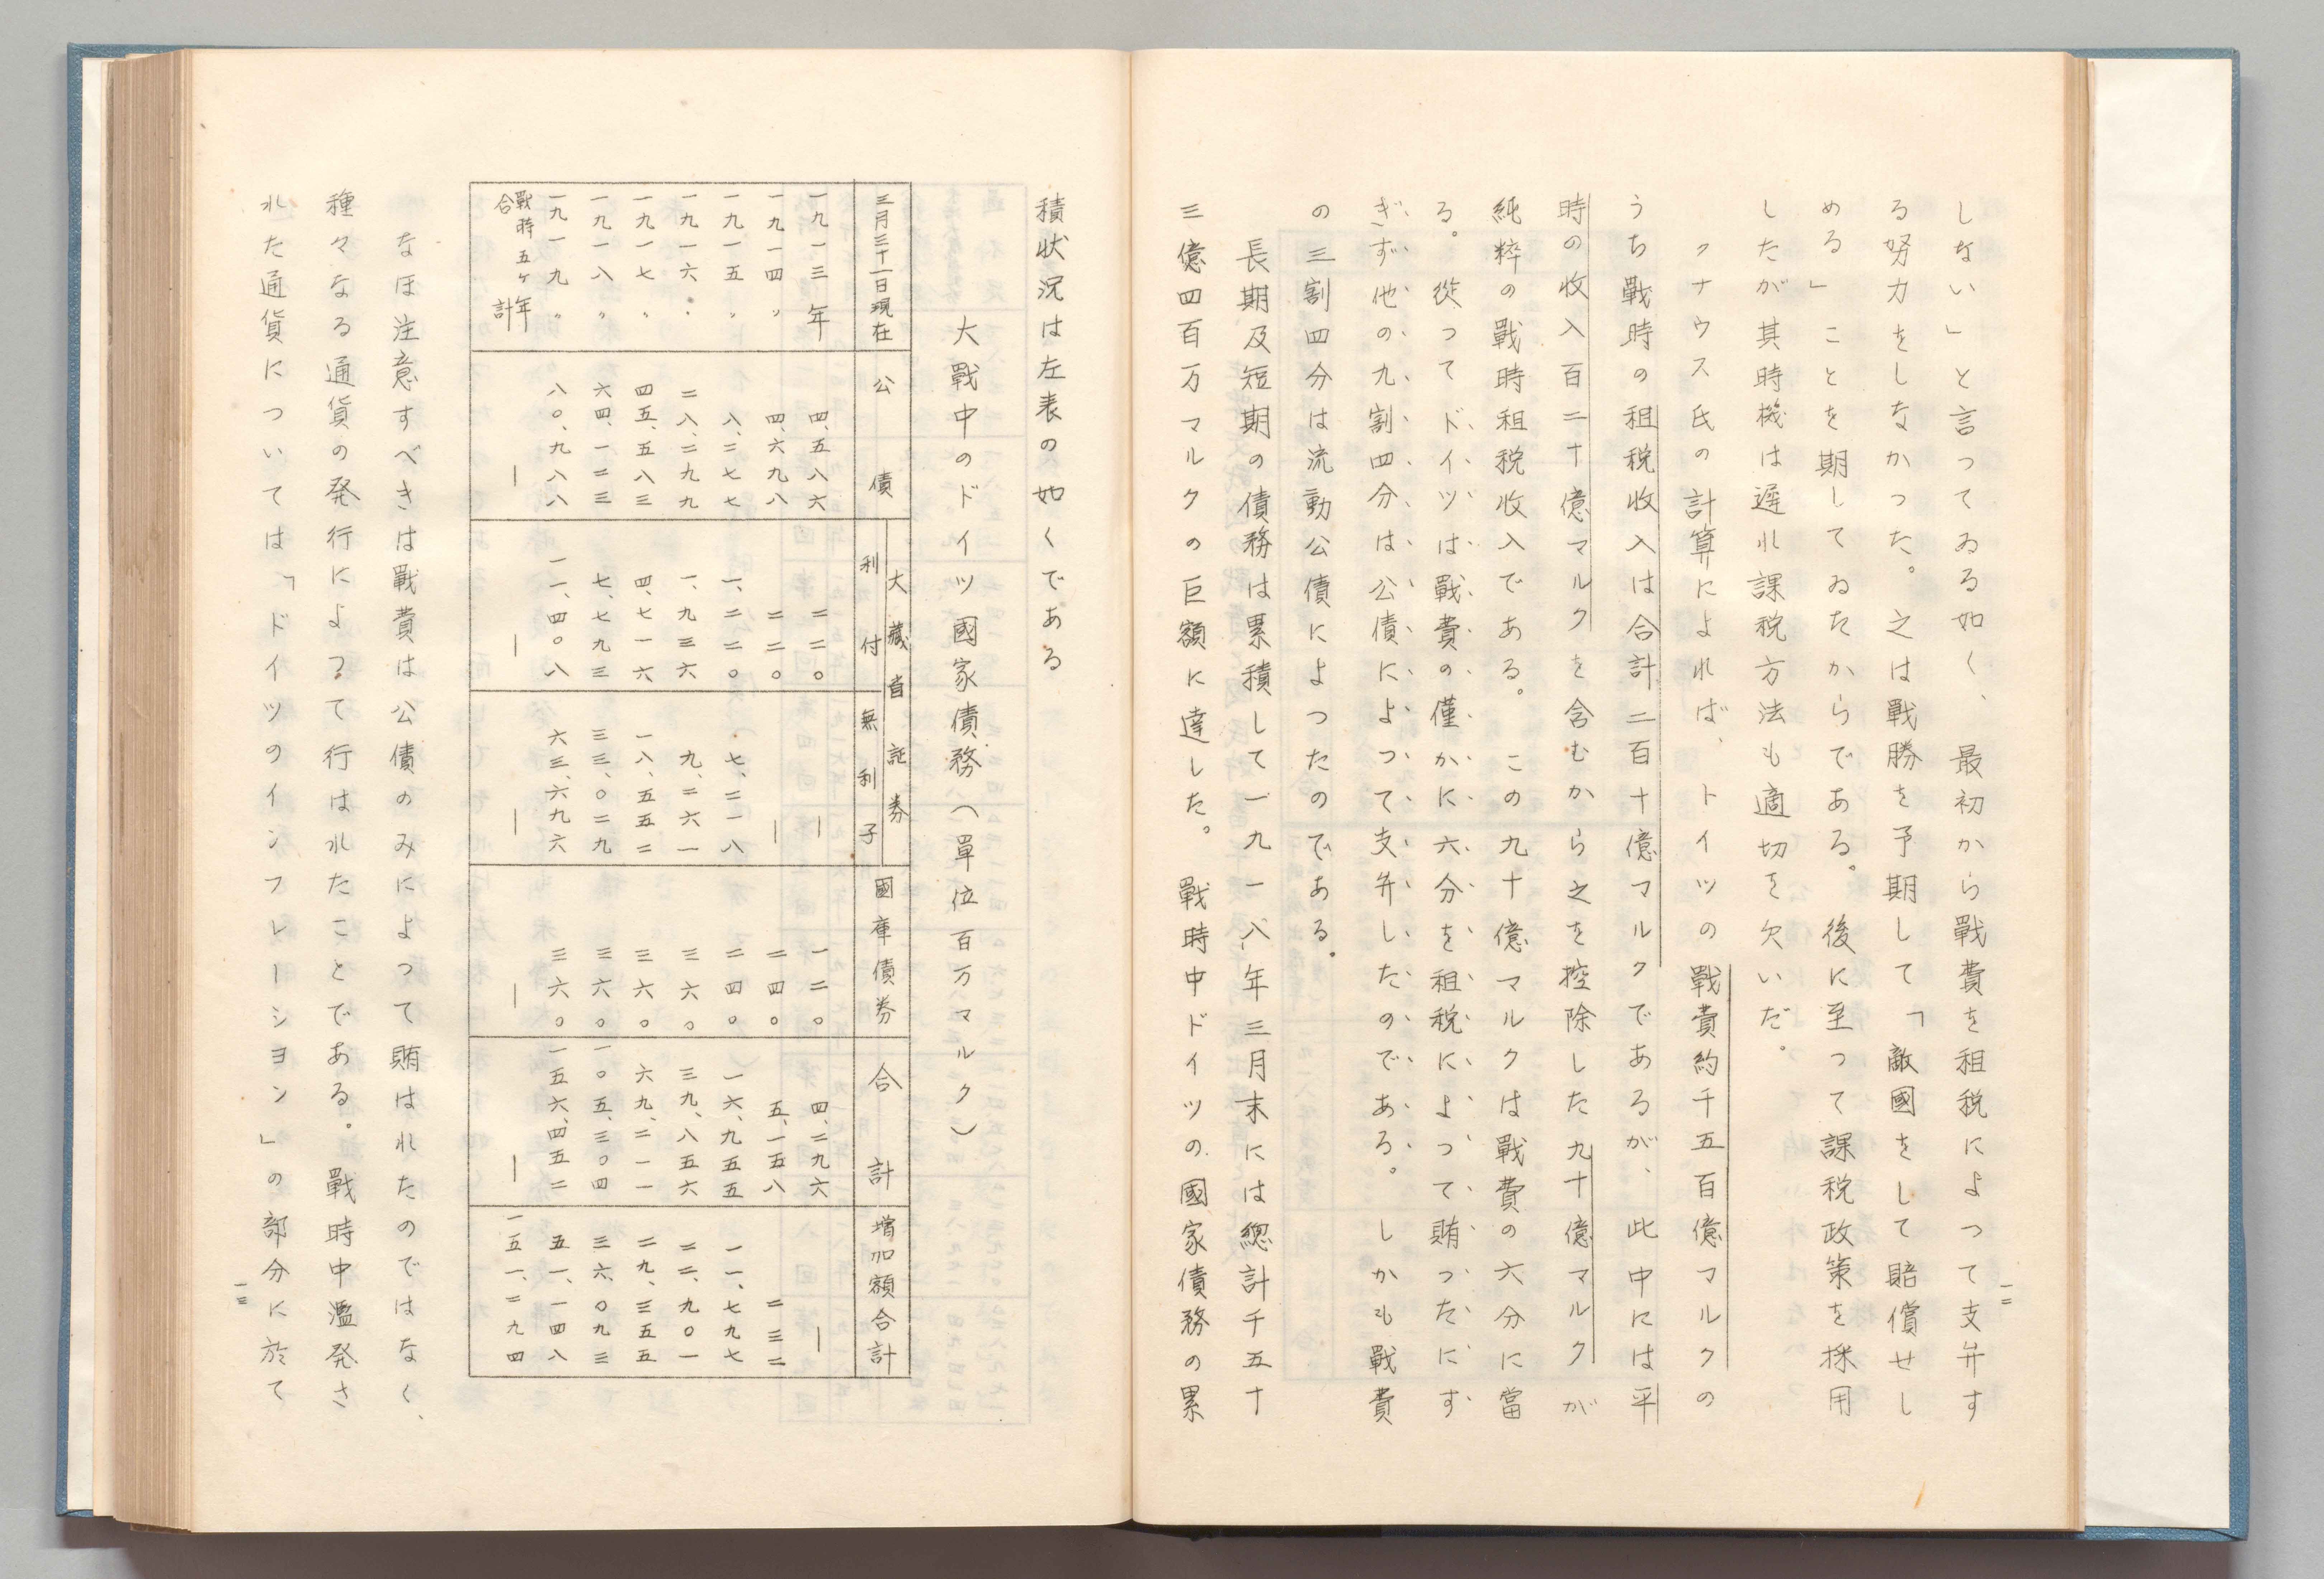 しない」と言つてゐる如く、最初から戰費を租税によつて支弁す
る努力をしなかつた。之は戰勝を予期して「敵國をして賠償せし
める」ことを期してゐたからである。後に至つて課税政策を採用
したが其時機は遅れ課税方法も適切を欠いだ。
クナウス氏の計算によれば、トイツの戰費約千五百億マルクの
うち戰時の租税收入は合計二百十億マルクであるが、此中には平
時の收入百二十億マルクを含むから之を控除した九十億マルクが
純粹の戰時租税收入である。この九十億マルクは戰費の六分に當
る。從つてドイツは戰費の僅かに六分を租税によつて賄つたにす
ぎず他の九割四分は公債によつて支弁したのである。しかも戰費
の三割四分は流動公債によつたのである。
長期及短期の債務は累積して一九一八年三月末には總計千五十
三億四百万マルクの巨額に達した。戰時中ドイツの國家債務の累
一二
積状況は左表の如くである
大戰中のドイツ國家債務(單位百万マルク)
三月三十一日現在 公債 大藏省証券 利付 無利子 國庫債券 合計 増加額合計
一九一三年 四、五八六 二二〇 — 一二〇 四、二九六 —
一九一四〃 四、六九八 二二〇 — 二四〇 五、一五八 二三二
一九一五〃 八、二七七 一、二二〇 七、二一八 二四〇 一六、九五五 一一、七九七
一九一六〃 二八、二九九 一、九三六 九、二六一 三六〇 三九、八五六 二二、九〇一
一九一七〃 四五、五八三 四、七一六 一八、五五二 三六〇 六九、二一一 二九、三五五
一九一八〃 六四、一二三 七、七九三 三三、〇二九 三六〇 一〇五、三〇四 三六、〇九三
一九一九〃 八〇、九八八 一一、四〇八 六三、六九六 三六〇 一五六、四五二 五一、一四八
戰時五ヶ年合計 — — — — — 一五一、二九四
なほ注意すべきは戰費は公債のみによつて賄はれたのではなく、
種々なる通貨の発行によつて行はれたことである。戰時中濫発さ
れた通貨については「ドイツのインフレーシヨン」の部分に於て
一三